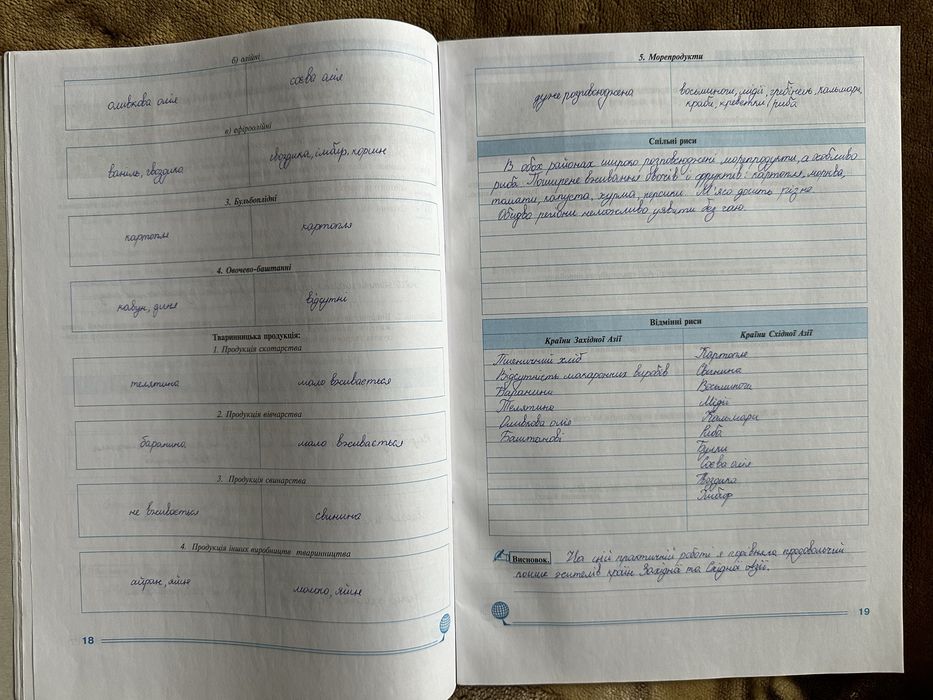 б) олійні
оливкова олія
соєва олія
в) ефіроолійні
ваниль, гвоздика
гвоздика, імбир, кориця
3. Бульбоплідні
картопля
картопля
4. Овочево-баштанні
кавун, диня
відсутні
Тваринницька продукція:
1. Продукція скотарства
телятина
мало вживається
2. Продукція вівчарства
баранина
мало вживається
3. Продукція свинарства
не вживається
свинина
4. Продукція інших виробництв тваринництва
айран, яйця
молоко, яйця
18
5. Морепродукти
дуже розповсюджена
восьминоги, мідії, гребінець, кальмари,
краби, креветки, риба
Спільні риси
В обох районах широко розповсюджені морепродукти, а особливо
риба. Поширене вживання овочів і фруктів: картопля, морква,
томати, капуста, хурма, персики. М'ясо досить різне.
Обидва регіони неможливо уявити без чаю.
Відмінні риси
Країни Західної Азії
Країни Східної Азії
Пшеничний хліб
Картопля
Відсутність макаронних виробів
Свинина
Баранина
Восьминоги
Телятина
Мідії
Оливкова олія
Кальмари
Баштанові
Риба
Соєва олія
Гвоздика
Імбир
Висновок. На цій практичній роботі я порівняла продовольчий
кошик жителів країн Західної та Східної Азії.
19